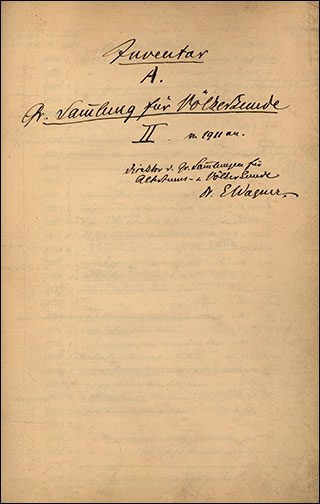 Inventar
A.
Gr. Sam̅lung für Völkerkunde
II v. 1911 an.
Direktor d. Gr. Sam̅lungen für
Altertums- u. Völkerkunde
Dr. E. Wagner.